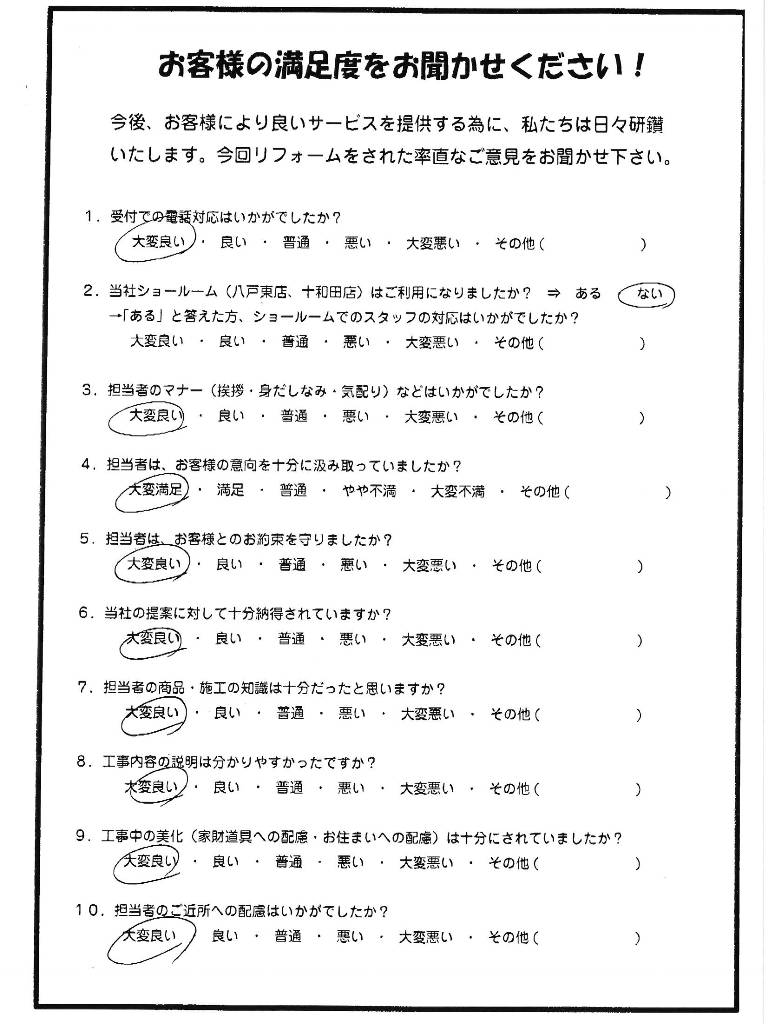 お客様の満足度をお聞かせください！
今後、お客様により良いサービスを提供する為に、私たちは日々研鑽
いたします。今回リフォームをされた率直なご意見をお聞かせ下さい。
１．受付での電話対応はいかがでしたか？
大変良い ・ 良い ・ 普通 ・ 悪い ・ 大変悪い ・ その他（　　　　　　）
２．当社ショールーム（八戸東店、十和田店）はご利用になりましたか？ ⇒ ある ない
→「ある」と答えた方、ショールームでのスタッフの対応はいかがでしたか？
大変良い ・ 良い ・ 普通 ・ 悪い ・ 大変悪い ・ その他（　　　　　　）
３．担当者のマナー（挨拶・身だしなみ・気配り）などはいかがでしたか？
大変良い ・ 良い ・ 普通 ・ 悪い ・ 大変悪い ・ その他（　　　　　　）
４．担当者は、お客様の意向を十分に汲み取っていましたか？
大変満足 ・ 満足 ・ 普通 ・ やや不満 ・ 大変不満 ・ その他（　　　　　　）
５．担当者は、お客様とのお約束を守りましたか？
大変良い ・ 良い ・ 普通 ・ 悪い ・ 大変悪い ・ その他（　　　　　　）
６．当社の提案に対して十分納得されていますか？
大変良い ・ 良い ・ 普通 ・ 悪い ・ 大変悪い ・ その他（　　　　　　）
７．担当者の商品・施工の知識は十分だったと思いますか？
大変良い ・ 良い ・ 普通 ・ 悪い ・ 大変悪い ・ その他（　　　　　　）
８．工事内容の説明は分かりやすかったですか？
大変良い ・ 良い ・ 普通 ・ 悪い ・ 大変悪い ・ その他（　　　　　　）
９．工事中の美化（家財道具への配慮・お住まいへの配慮）は十分にされていましたか？
大変良い ・ 良い ・ 普通 ・ 悪い ・ 大変悪い ・ その他（　　　　　　）
１０．担当者のご近所への配慮はいかがでしたか？
大変良い ・ 良い ・ 普通 ・ 悪い ・ 大変悪い ・ その他（　　　　　　）